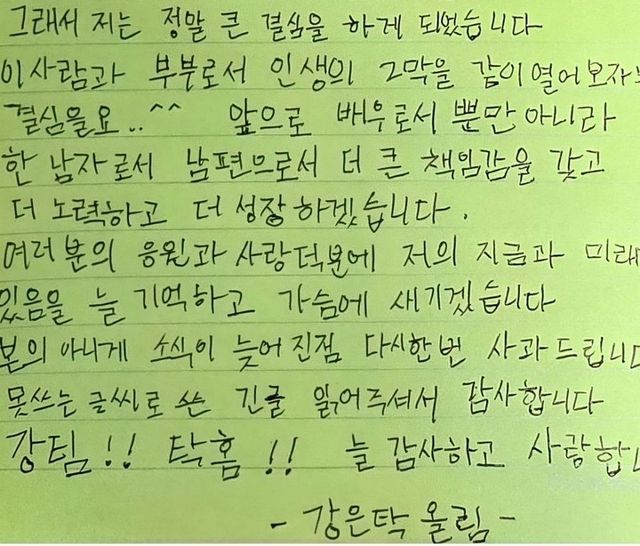 그래서 저는 정말 큰 결심을 하게 되었습니다
이사람과 부부로서 인생의 2막을 같이 열어보자는
결심을요..^^ 앞으로 배우로서 뿐만 아니라
한 남자로서 남편으로서 더 큰 책임감을 갖고
더 노력하고 더 성장하겠습니다.
여러분의 응원과 사랑덕분에 저의 지금과 미래
있음을 늘 기억하고 가슴에 새기겠습니다
본의 아니게 소식이 늦어진점 다시한번 사과드립니다
못쓰는 글씨로 쓴 긴글 읽어주셔서 감사합니다
강팀!! 탁홈!! 늘 감사하고 사랑합니
- 강은탁 올림 -